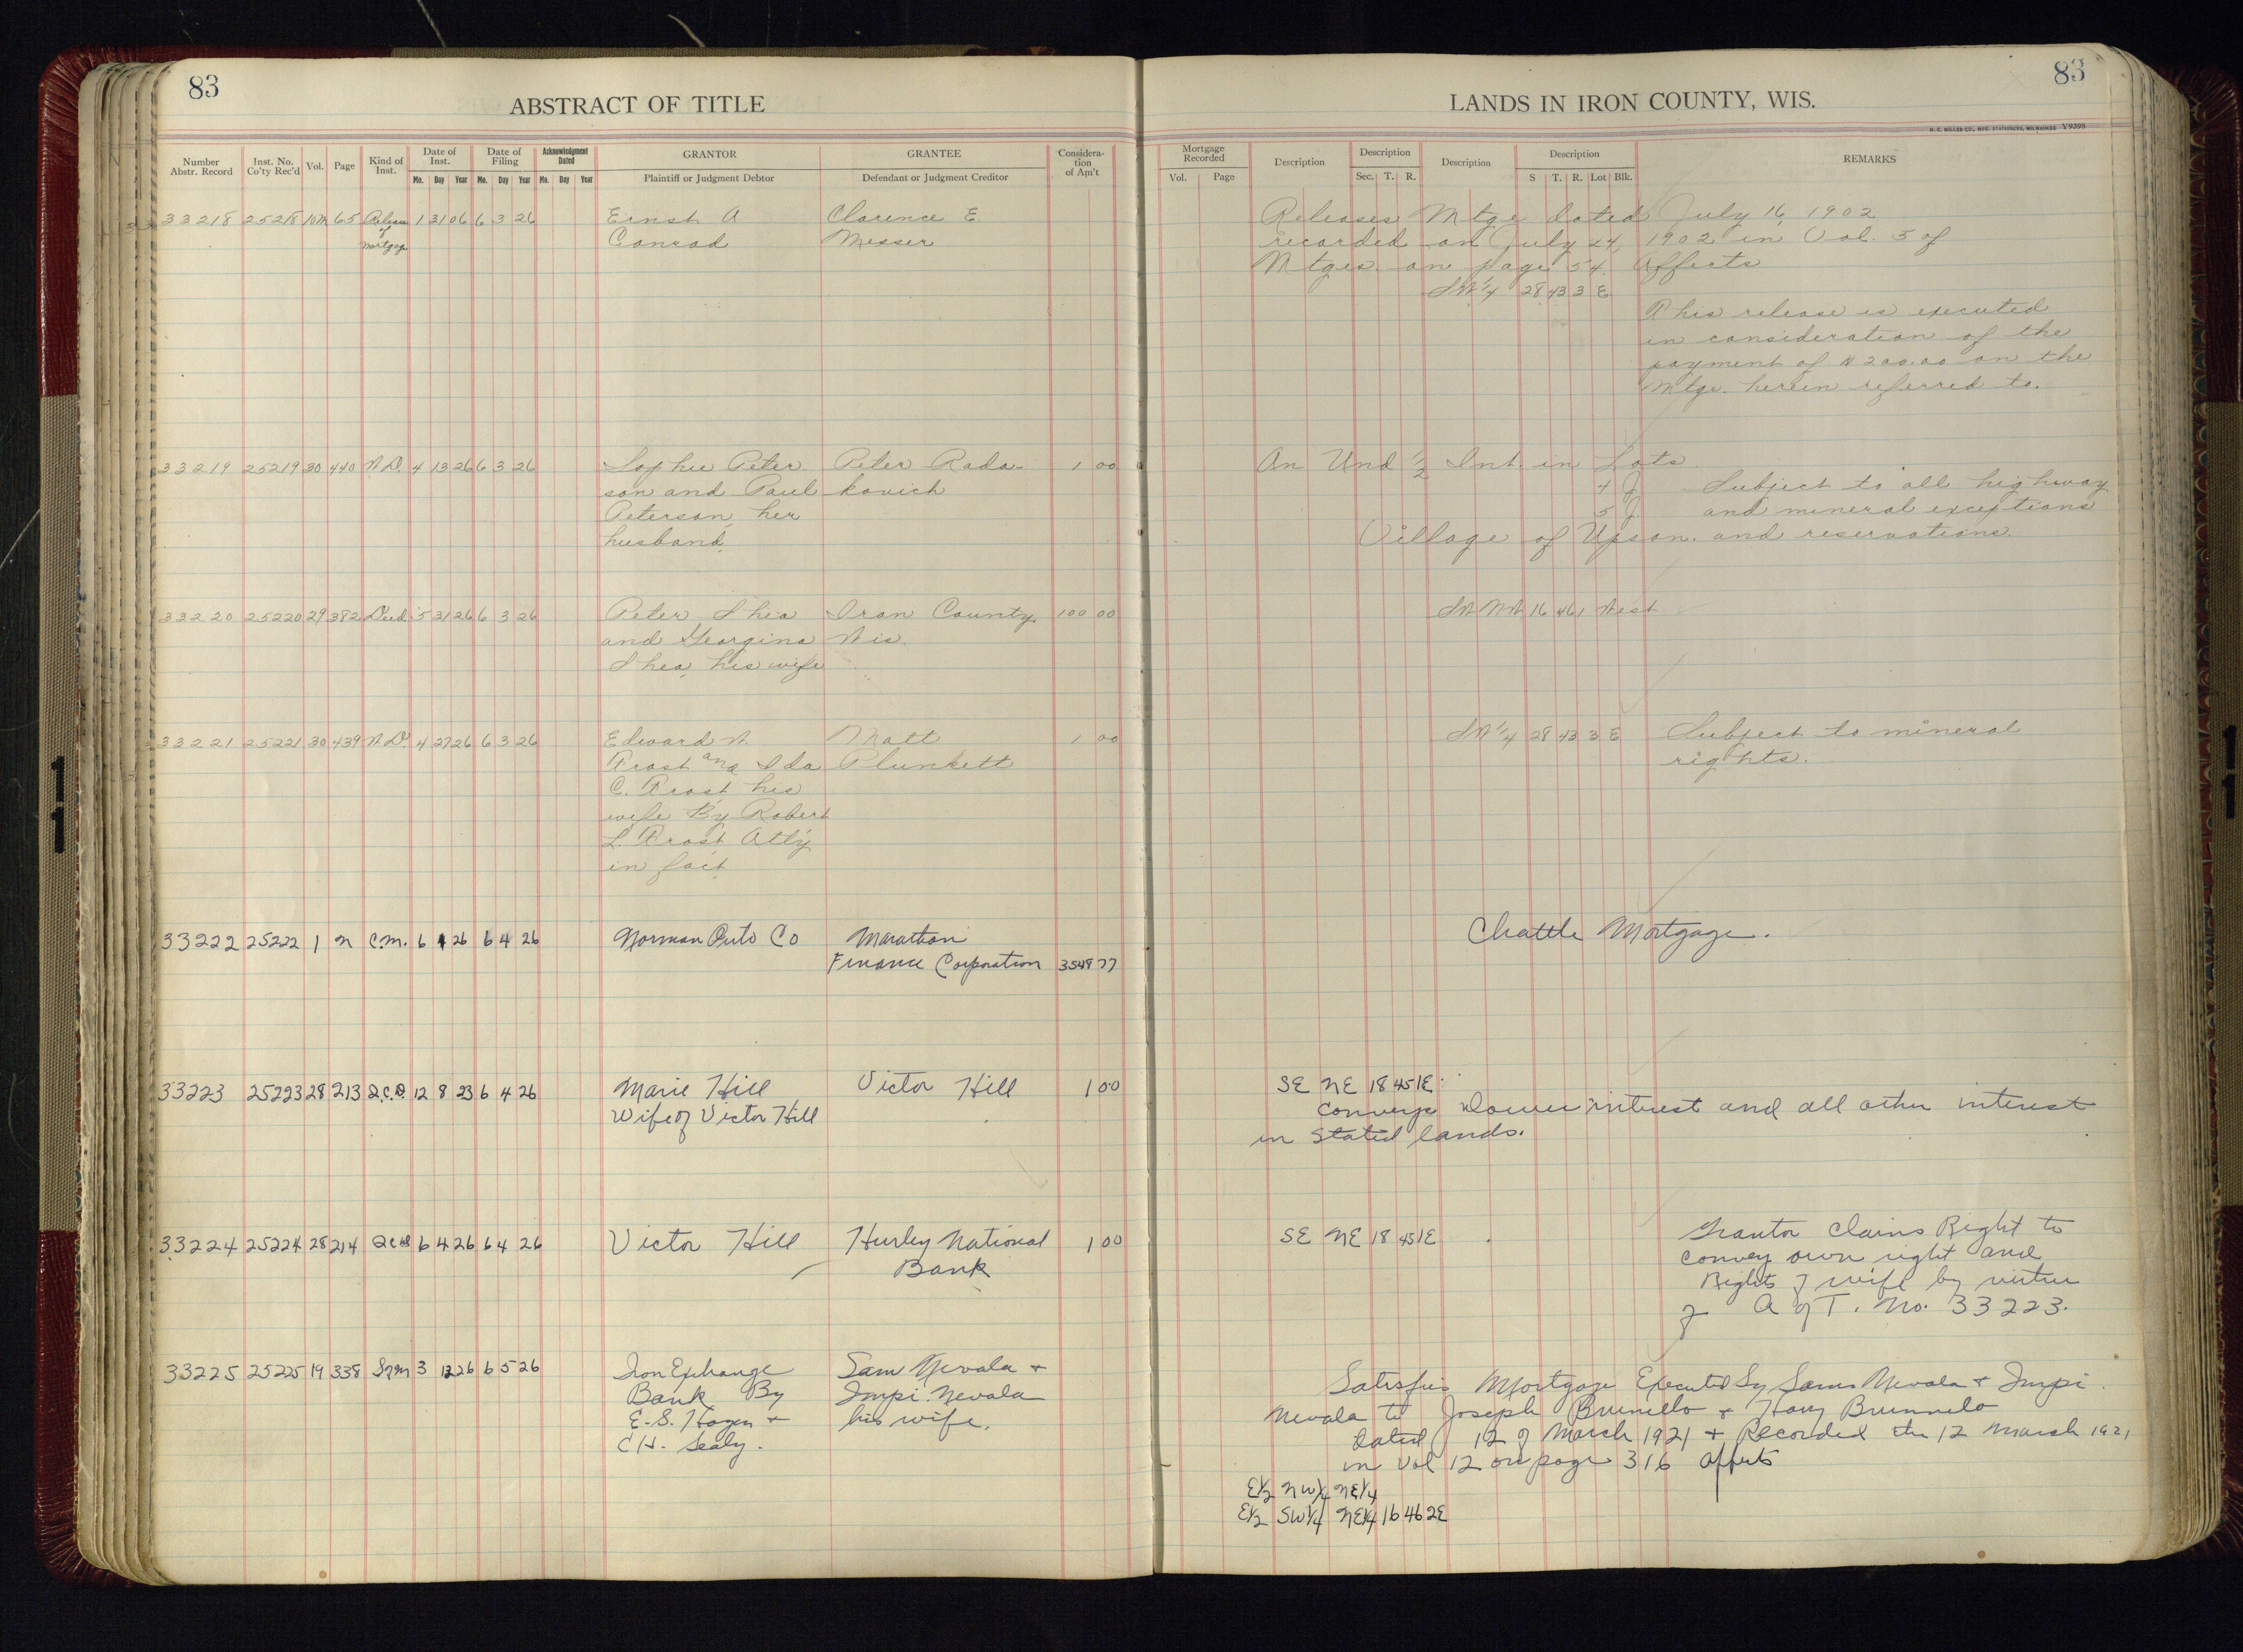 83
ABSTRACT OF TITLE
Number Abstr. Record
Inst. No. Co'ty Rec'd
Vol.
Page
Kind of Inst.
Date of Inst.
Mo. Day Year
Date of Filing
Mo. Day Year
Acknowledgment Dated
Mo. Day Year
GRANTOR
Plaintiff or Judgment Debtor
GRANTEE
Defendant or Judgment Creditor
Considera-tion of Am't
33218 25218 10M 65 Release 1 31 06 6 3 26 Ernst A Clarence E
of Conrad Messer
Mortgage
33219 25219 30 440 W.D. 4 13 26 6 3 26 Sophie Peter Peter Rada- 1 00
son and Paul kovich
Peterson, her
husband,
33220 25220 29 382 Deed 5 31 26 6 3 26 Peter Shea Iron County, 100 00
and Georgina Wis.
Shea, his wife
33221 25221 30 439 W.D. 4 27 26 6 3 26 Edward W. Matt 1 00
Frost and Ida Plunkett
C. Frost his
wife By Robert
L. Frost Att'y
in fact
33222 25222 1 n C.M. 6 26 6 4 26 Norman Auto Co Marathon
Finance Corporation 3549 77
33223 25223 28 213 Q.C.D. 12 8 23 6 4 26 Marie Hill Victor Hill 1 00
Wife of Victor Hill
33224 25224 28 214 6 4 26 6 4 26 Victor Hill Hurley National 1 00
Bank
33225 25225 19 338 3 12 26 6 5 26 Iron Exchange Sam Nevala +
Bank By Impi Nevala
E.S. Hagen + his wife.
C H. Sealy.
83
LANDS IN IRON COUNTY, WIS.
H. C. MILLER CO., MFG. STATIONERS, MILWAUKEE Y9398
Mortgage Recorded
Vol. Page
Description
Description
Sec. T. R.
Description
Description
S T. R. Lot Blk.
REMARKS
Releases Mtge dated July 16, 1902
recorded on July 24, 1902 in Vol. 5 of
Mtges. on page 54. Affects
SW 1/4 28 43 3 E
This release is executed
in consideration of the
payment of $200.00 on the
Mtge. herein referred to.
An Und 1/2 Int. in Lots
4 J Subject to all highway
5 J and mineral exceptions
Village of Upson. and reservations.
SW NW 16 46 1 West
SW 1/4 28 43 3 E Subject to mineral
rights.
Chattle Mortgage.
SE NE 18 45 1E
Conveys Dower interest and all other interest
in Stated lands.
SE NE 18 45 1E Grantor Claims Right to
Convey own right and
Rights of wife by virtue
of A of T. No. 33223.
Satisfies Mortgage Executed by Sam Nevala + Impi
Nevala to Joseph Brunello + Brunnelo
Dated 12 of March 1921 + Recorded the 12 March 1921
in Vol 12 on page 316 affects
E1/2 NW1/4 NE1/4
E1/2 SW1/4 NE1/4 16 46 2E